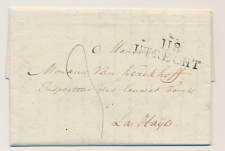 118
UTRECHT
a Monsieur
Monsieur Van Kerckhoff
Inspecteur des
à
La Haye